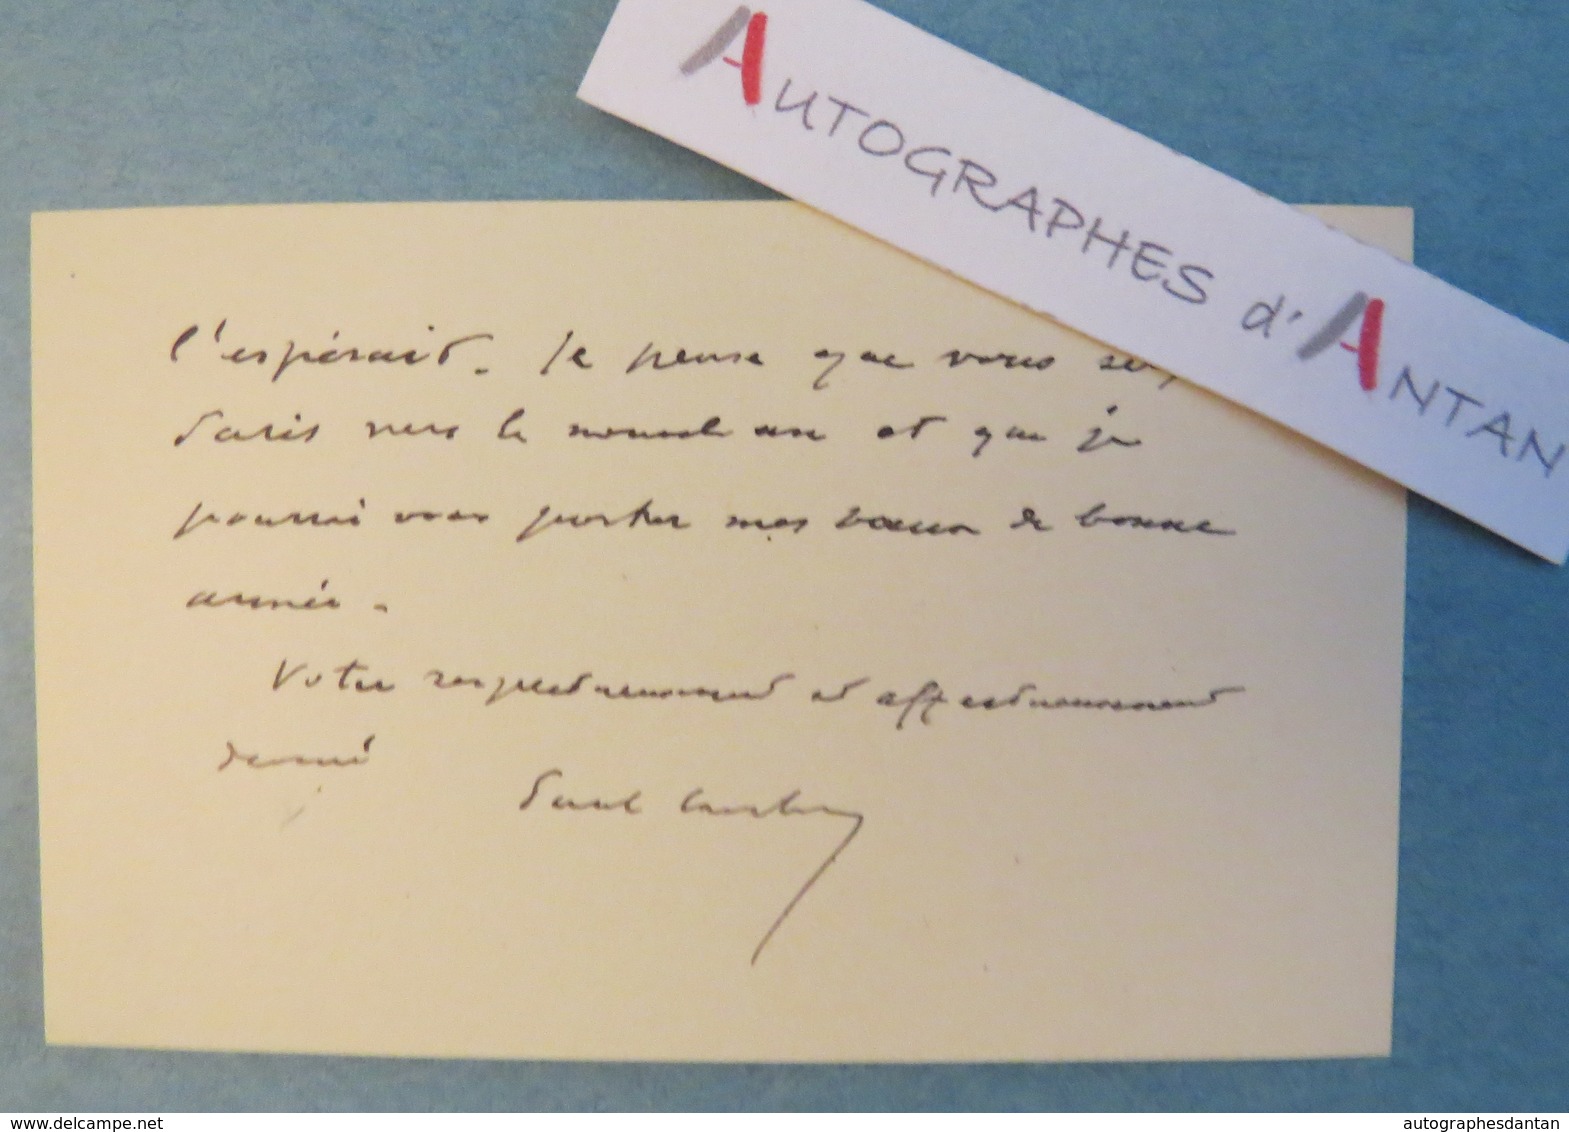 AUTOGRAPHES d'ANTAN
l'espérait. Je pense que vous
Paris vers le nouvel an et que je
pourrai vous porter mes vœux de bonne
année.
Votre respectueusement et affectueusement
dévoué
Paul
www.delcampe.net
autographesdantan